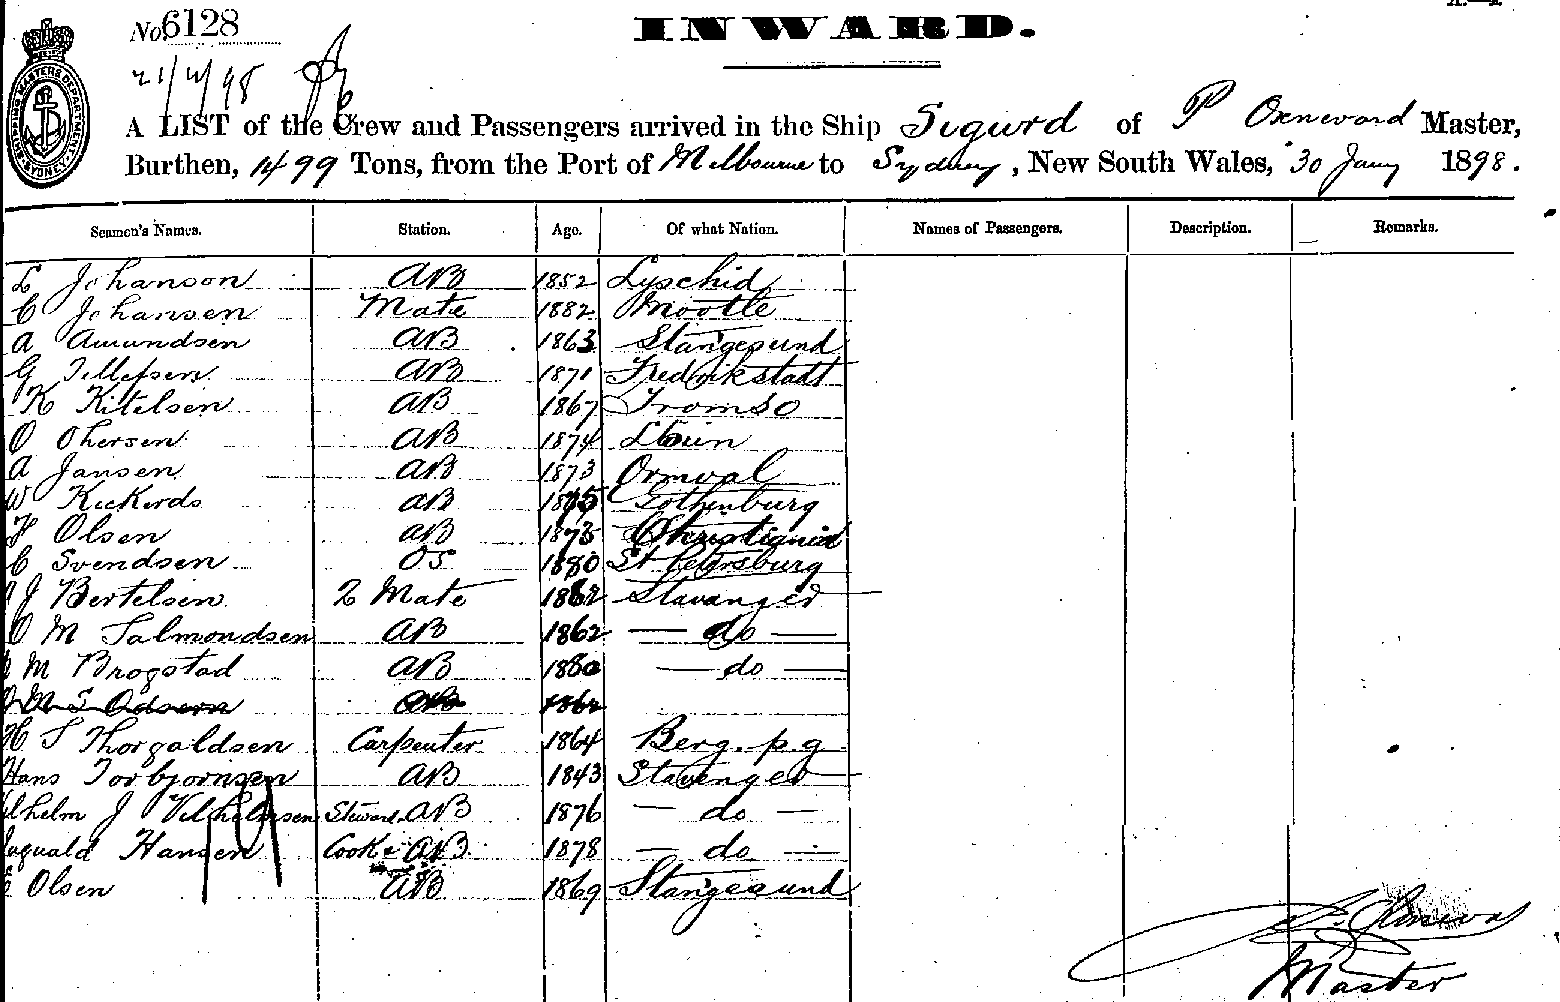 No. 6128
INWARD.
21/4/98
A LIST of the Crew and Passengers arrived in the Ship Sigurd of P Master,
Burthen, 1499 Tons, from the Port of Melbourne to Sydney, New South Wales, 30 Jany 1898.
Seamen's Names. Station. Age. Of what Nation. Names of Passengers. Description. Remarks.
L Johanson AB 1852 Lyschid
C Johansen Mate 1882
A Amundsen AB 1863 Stangesund
G Tellefsen AB 1871 Fredrikstadt
K Kitelsen AB 1867 Tromso
O Ohersen AB 1874
A Jansen AB 1873 Ormval
W Kickerds AB 1875 Gothenburg
H Olsen AB 1873 Christiania
C Svendsen OS 1880 St Petersburg
J Bertelsen 2 Mate 1862 Stavanger
O M Salmondsen AB 1862 — do —
M Brogstad AB 1880 — do —
M S Odsern AB 1862
H S Thorgaldsen Carpenter 1864 Berg. p.g
Hans Torbjornsen AB 1843 Stavenger
lhelm J Vilhelmsen Steward AB 1876 — do —
nguald Hansen Cook & AB 1878 — do —
Olsen AB 1869 Stangesund
19
Master